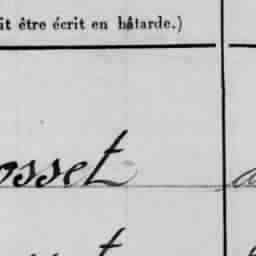 it être écrit en bâtarde.)
osset